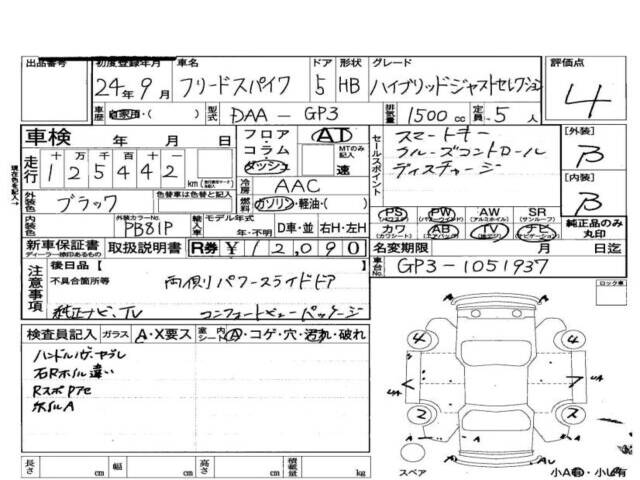 出品番号 初度登録年月 車名 ドア 形状 グレード 評価点
24年9月 フリードスパイク 5 HB ハイブリッドジャストセレクション 4
車歴 自家用・( ) 型式 DAA-GP3 排気量 1500cc 定員 5人
車検 年 月 日
フロア・コラム・ダッシュ AT MTのみ記入 速
セールスポイント
スマートキー
クルーズコントロール
ディスチャージ
[外装] B
[内装] B
走行 十万千百十一 125442 km
冷房 AAC
外装色 ブラック 色替車は色替と記入
燃料 ガソリン・軽油・( )
内装色 外装カラーNo. PB81P
輸入車 モデル年式 年・不明 D車・並 右H・左H
PS (パワーステアリング) PW (パワーウィンドウ) AW (アルミホイル) SR (サンルーフ)
カワ (カワシート) AB (エアバッグ) TV ナビ (ナビゲーション)
純正品のみ丸印
新車保証書 ディーラー捺印あるもの 取扱説明書 R券 ¥12,090
名変期限 月 日迄
車台No. GP3-1051937
注意事項 後日品 [ ]
不具合箇所等 両側パワースライドドア
純正ナビ、TV コンフォートビューパッケージ
ロック車
検査員記入 ガラス A・X要ス 室内シート A・コゲ・穴・汚れ・破れ
ハンドル
石Rホイル違い
ホイルA
4 4
2 2
A A
スペア
小A有・小U有
長さ cm 幅 cm 高さ cm 積載量 kg